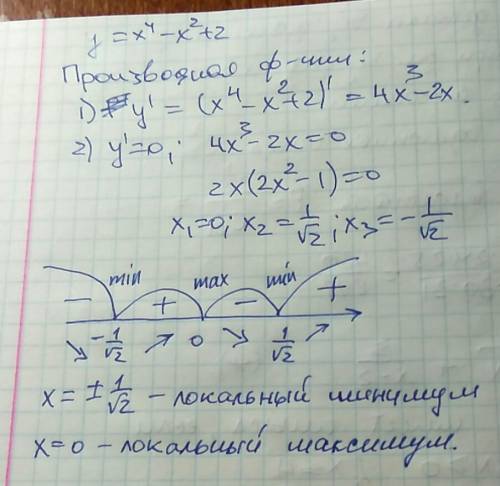 y = x⁴ - x² + 2
Производная ф-ции:
1) y' = (x⁴ - x² + 2)' = 4x³ - 2x.
2) y' = 0; 4x³ - 2x = 0
2x(2x² - 1) = 0
x₁ = 0; x₂ = 1/√2; x₃ = -1/√2
min max min
- + - +
↘ -1/√2 ↗ 0 ↘ 1/√2 ↗
x = ± 1/√2 - локальный минимум
x = 0 - локальный максимум.